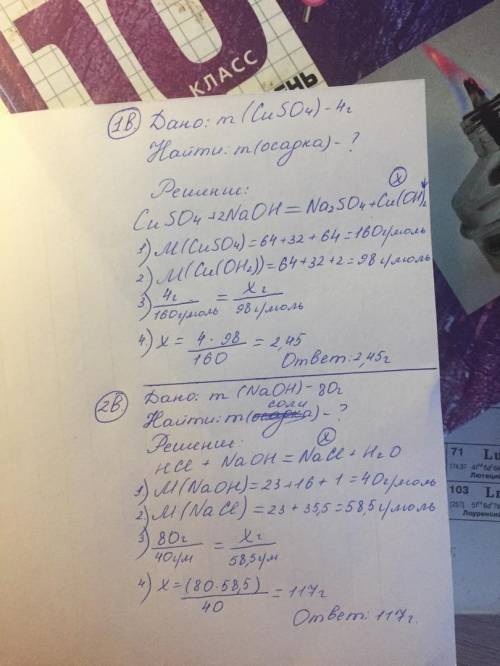 10
КЛАСС
1В. Дано: m (CuSO4) - 4г
Найти: m(осадка) - ?
Решение:
x
CuSO4 + 2NaOH = Na2SO4 + Cu(OH)2↓
1) M(CuSO4) = 64 + 32 + 64 = 160 г/моль
2) M(Cu(OH2)) = 64 + 32 + 2 = 98 г/моль
3) 4г / 160 г/моль = xг / 98 г/моль
4) x = 4 · 98 / 160 = 2,45
Ответ: 2,45г
2В. Дано: m (NaOH) - 80г
соли
Найти: m(осадка) - ?
Решение:
x
HCl + NaOH = NaCl + H2O
1) M(NaOH) = 23 + 16 + 1 = 40 г/моль
2) M(NaCl) = 23 + 35,5 = 58,5 г/моль
3) 80г / 40 г/м = xг / 58,5 г/м
4) x = (80 · 58,5) / 40 = 117г
Ответ: 117г.
71 Lu
Лютеций
103 L
Лоуренсий